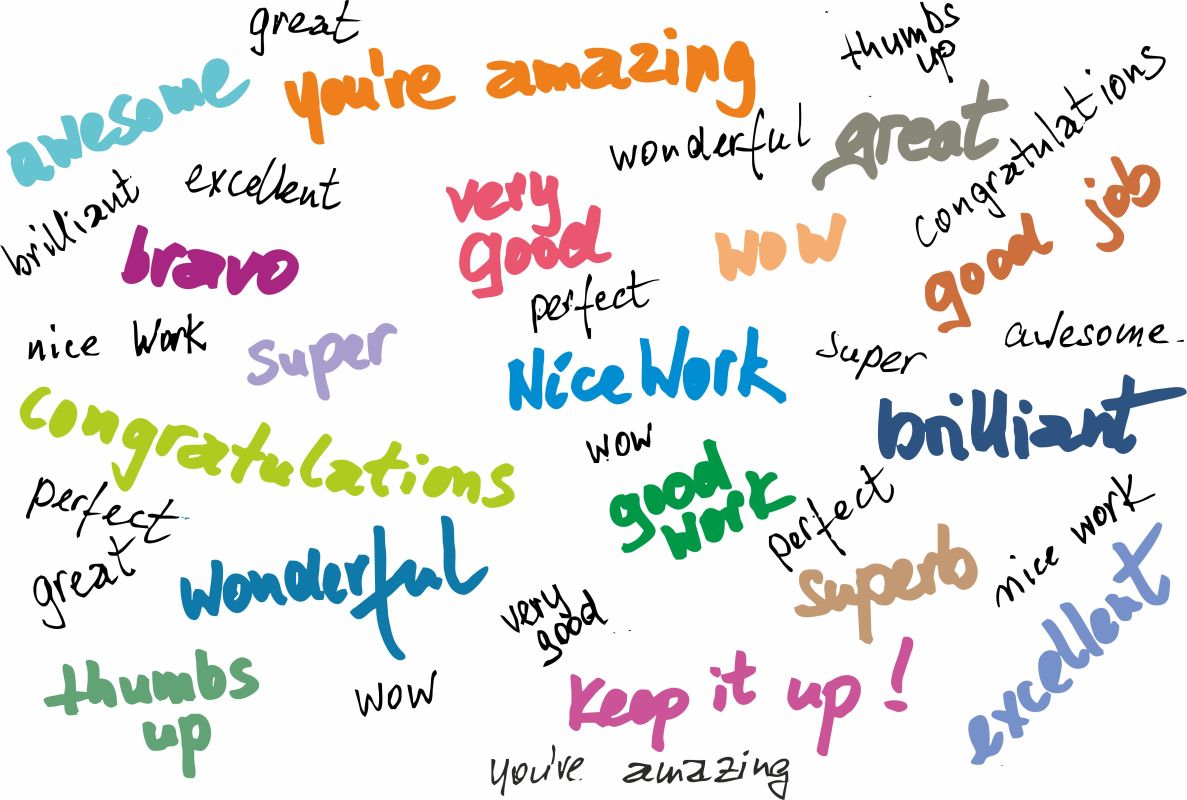 great
thumbs
up
awesome
you're amazing
congratulations
wonderful
great
brilliant
excellent
very
good
good job
bravo
wow
perfect
nice Work
super
Nice Work
super
awesome.
congratulations
brilliant
wow
good
work
perfect
perfect
nice work
great
wonderful
superb
excellent
very
good
thumbs
up
wow
Keep it up !
you're amazing